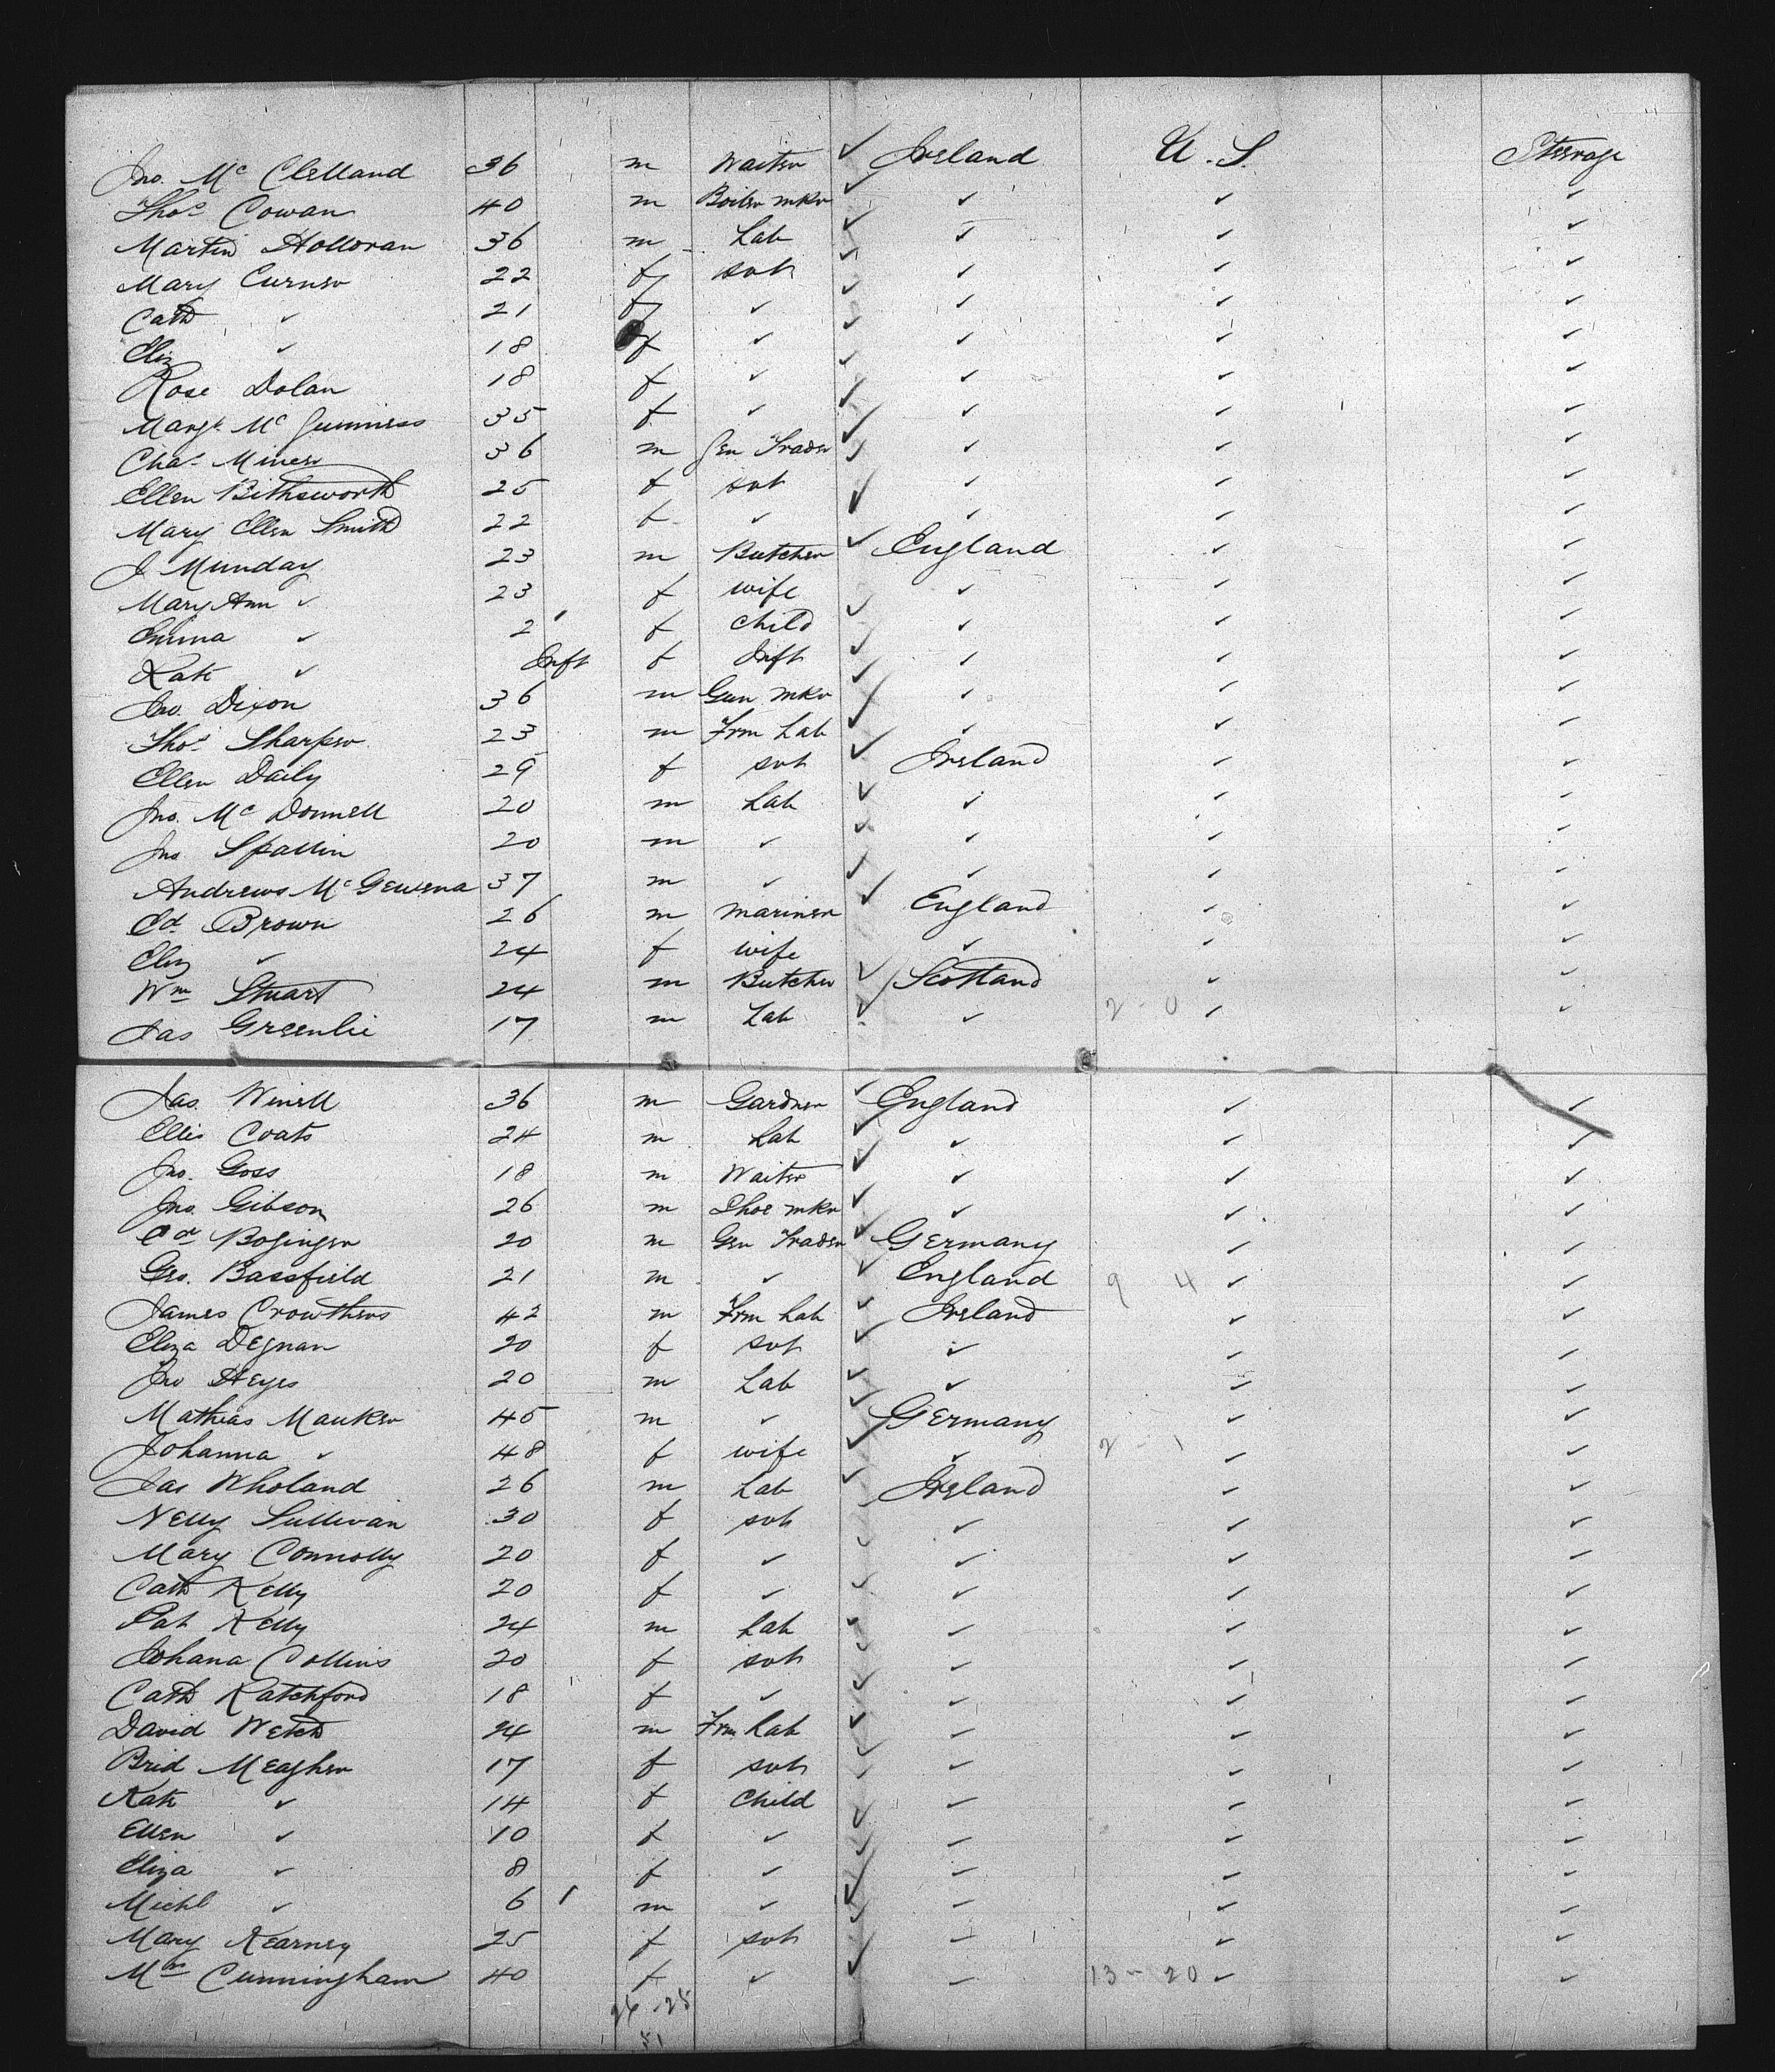 Jno. Mc Clelland 36 m Waiter ✓ Ireland U.S. Steerage
Thos Cowan 40 m Boiler mkr ✓ ✓ ✓ ✓
Martin Holloran 36 m Lab ✓ ✓ ✓ ✓
Mary Curner 22 f svt ✓ ✓ ✓ ✓
Cath ✓ 21 f ✓ ✓ ✓ ✓ ✓
Eliz ✓ 18 f ✓ ✓ ✓ ✓ ✓
Rose Dolan 18 f ✓ ✓ ✓ ✓ ✓
Margt Mc Guinness 35 f ✓ ✓ ✓ ✓ ✓
Chas Miner 36 m Gen Trader ✓ ✓ ✓ ✓
Ellen Bithsworth 25 f svt ✓ ✓ ✓ ✓
Mary Ellen Smith 22 f ✓ ✓ ✓ ✓ ✓
J Munday 23 m Butcher ✓ England ✓ ✓
Mary Ann ✓ 23 f wife ✓ ✓ ✓
Emma ✓ 2 f child ✓ ✓ ✓ ✓
Kate ✓ Inft f Inft ✓ ✓ ✓ ✓
Jno. Dixon 36 m Gun mkr ✓ ✓ ✓ ✓
Thos Sharper 23 m Frm Lab ✓ ✓ ✓ ✓
Ellen Daily 29 f svt ✓ Ireland ✓ ✓
Jno. Mc Donnell 20 m Lab ✓ ✓ ✓ ✓
Jno Spallin 20 m ✓ ✓ ✓ ✓ ✓
Andrews Mc 37 m ✓ ✓ ✓ ✓ ✓
Ed. Brown 26 m mariner ✓ England ✓ ✓
Eliz ✓ 24 f wife ✓ ✓ ✓
Wm Stuart 24 m Butcher ✓ Scotland ✓ ✓
Jas Greenlie 17 m Lab ✓ ✓ 2 - 0 ✓ ✓
Jas. Winell 36 m Gardner ✓ England ✓ ✓
Ellis Coats 24 m Lab ✓ ✓ ✓ ✓
Jno. Goss 18 m Waiter ✓ ✓ ✓ ✓
Jno. Gibson 26 m Shoe mkr ✓ ✓ ✓ ✓
Ed Bosinger 20 m Gen Trader ✓ Germany ✓ ✓
Geo. Bassfield 21 m ✓ ✓ England 9 4 ✓ ✓
James Crowthers 42 m Frm Lab ✓ Ireland ✓ ✓
Eliza Degnan 20 f svt ✓ ✓ ✓ ✓
Jno Heyes 20 m Lab ✓ ✓ ✓ ✓
Mathias Manker 45 m ✓ ✓ Germany ✓ ✓
Johanna ✓ 48 f wife ✓ ✓ 2 - 1 ✓ ✓
Jas Wholand 26 m Lab ✓ Ireland ✓ ✓
Nelly Sullivan 30 f svt ✓ ✓ ✓ ✓
Mary Connolly 20 f ✓ ✓ ✓ ✓ ✓
Cath Kelly 20 f ✓ ✓ ✓ ✓ ✓
Pat Kelly 24 m Lab ✓ ✓ ✓ ✓
Johana Collins 20 f svt ✓ ✓ ✓ ✓
Cath Ratchford 18 f ✓ ✓ ✓ ✓ ✓
David Welch 24 m Frm Lab ✓ ✓ ✓ ✓
Brid Meagher 17 f svt ✓ ✓ ✓ ✓
Kate ✓ 14 f Child ✓ ✓ ✓ ✓
Ellen ✓ 10 f ✓ ✓ ✓ ✓ ✓
Eliza ✓ 8 f ✓ ✓ ✓ ✓ ✓
Michl ✓ 6 m ✓ ✓ ✓ ✓ ✓
Mary Kearney 25 f svt ✓ ✓ ✓ ✓
Mrs Cunningham 40 f ✓ ✓ ✓ 13 - 20 ✓ ✓
26 - 25
51